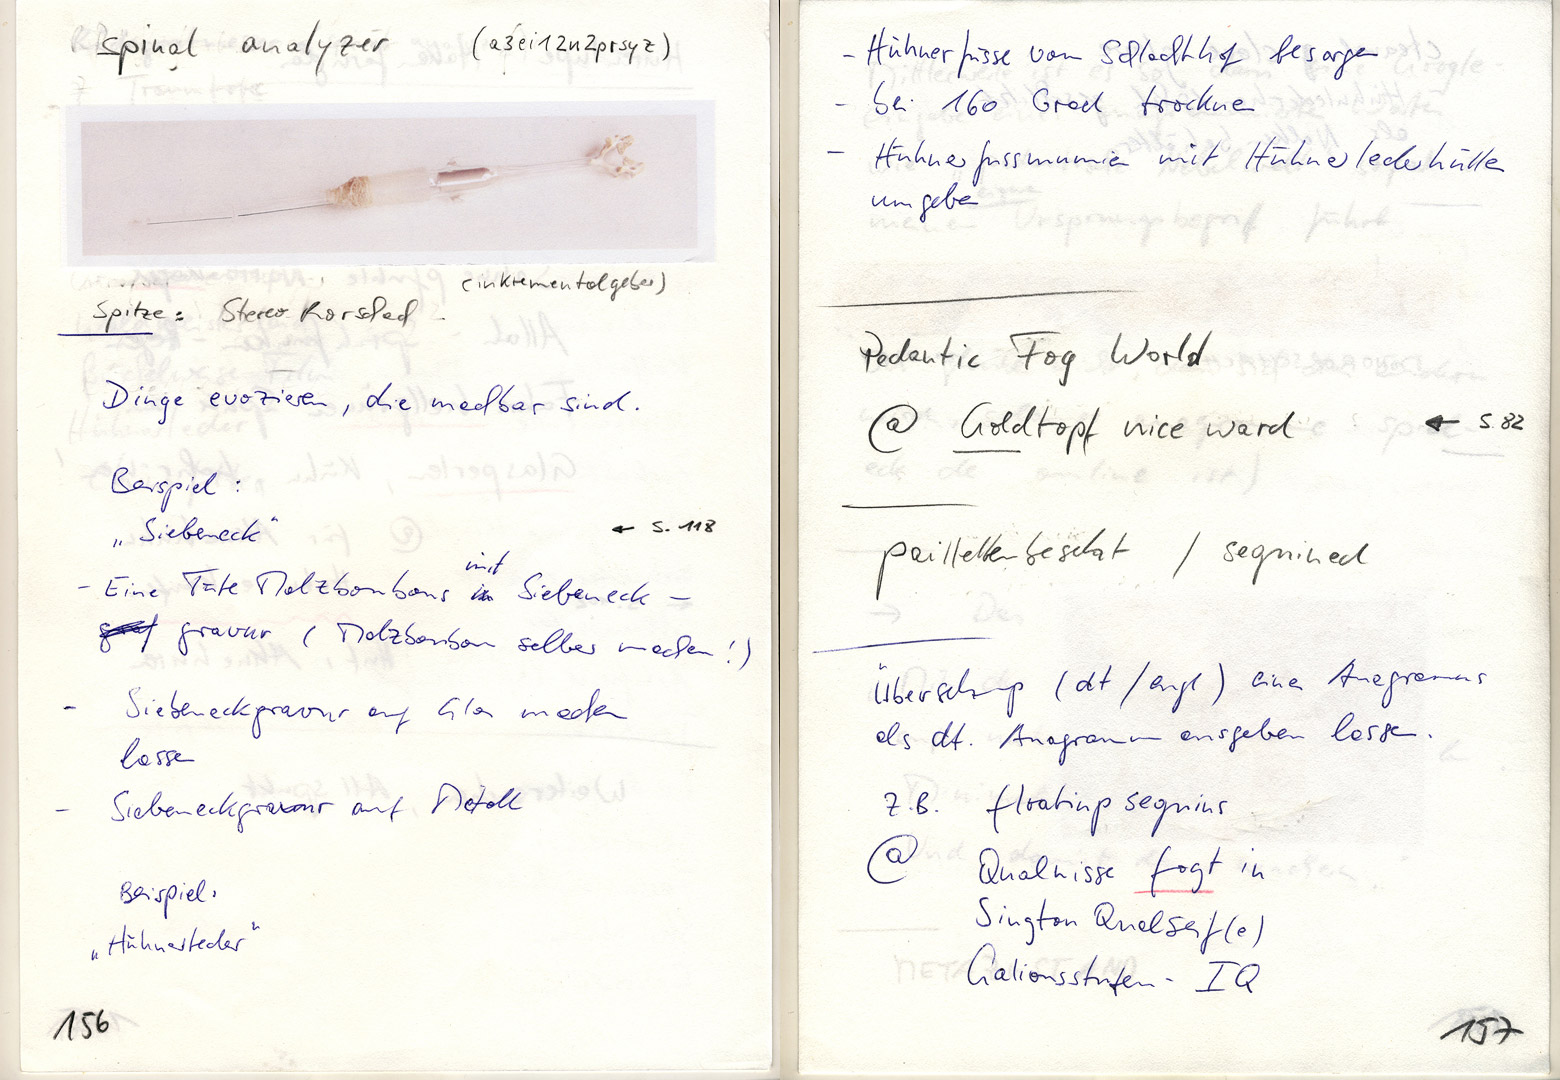 spinal analyzer (a3ei12n2prsyz)
(inkrementalgeber)
Spitze: Stereo Korschel
Dinge evozieren, die machbar sind.
Beispiel:
„Siebeneck"
← S. 118
mit
- Eine Tüte Malzbonbons in Siebeneck -
graf gravur (Malzbonbon selber machen!)
- Siebeneckgravur auf Glas machen
lassen
- Siebeneckgravur auf Metall
Beispiel:
„Hühnerleder"
156
- Hühnerfüsse vom Schlachthof besorgen
- bei 160 Grad trocknen
- Hühnerfussmumien mit Hühnerlederhüllen
umgeben
Pedantic Fog World
@ Goldtopf nice ward ← S. 82
paillettenbesetzt / sequined
Übersetzung (dt/engl) eines Anagramms
als dt. Anagramm ausgeben lassen.
z.B. floating sequins
@ Qualnisse fogt in
Sington Qualseif(e)
Galionsstufen - IQ
157